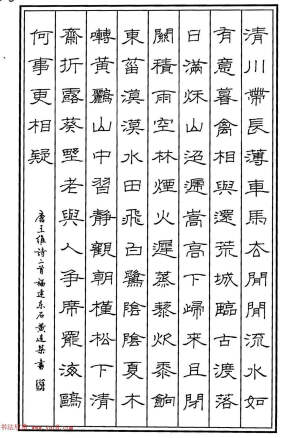 清川帶長薄車馬去閒閒流水如
有意暮禽相與還荒城臨古渡落
日滿秌山迢遞嵩高下歸來且閉
關積雨空林煙火遲蒸藜炊黍餉
東菑漠漠水田飛白鷺陰陰夏木
囀黃鸝山中習靜觀朝槿松下清
齋折露葵野老與人爭席罷海鷗
何事更相疑
唐王维诗二首福建东石黄连書